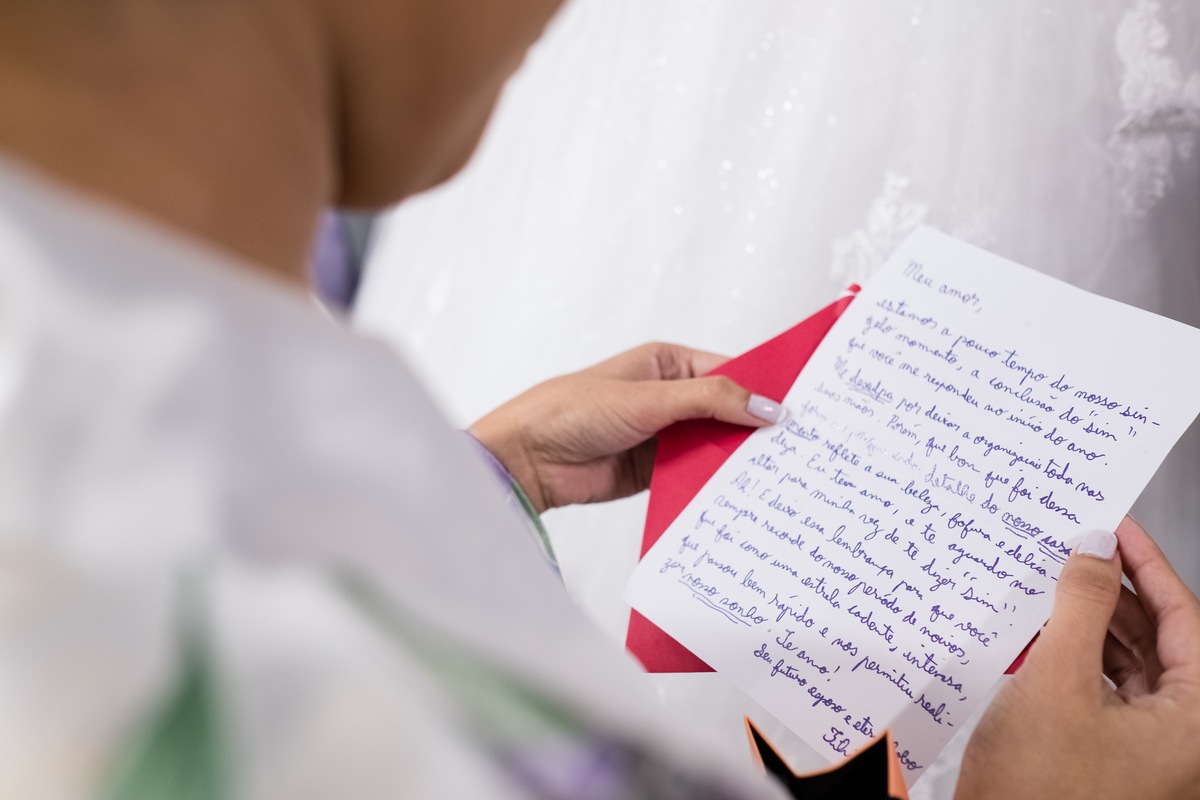 Meu amor,
estamos a pouco tempo do nosso sin-
gelo momento, a conclusão do "sim"
que você me respondeu no início do ano.
Me desculpa por deixar a organização toda nas
suas mãos. Porém, que bom que foi dessa
forma, cada detalhe do nosso casa
mento reflete a sua beleza, fofura e delica-
deza. Eu te amo, e te aguardo no
altar para minha vez de te dizer "sim".
Ah! E deixo essa lembrança para que você
sempre recorde do nosso período de noivos,
que foi como uma estrela cadente, intensa,
que passou bem rápido e nos permitiu reali-
zar nosso sonho. Te amo!
Seu futuro esposo e